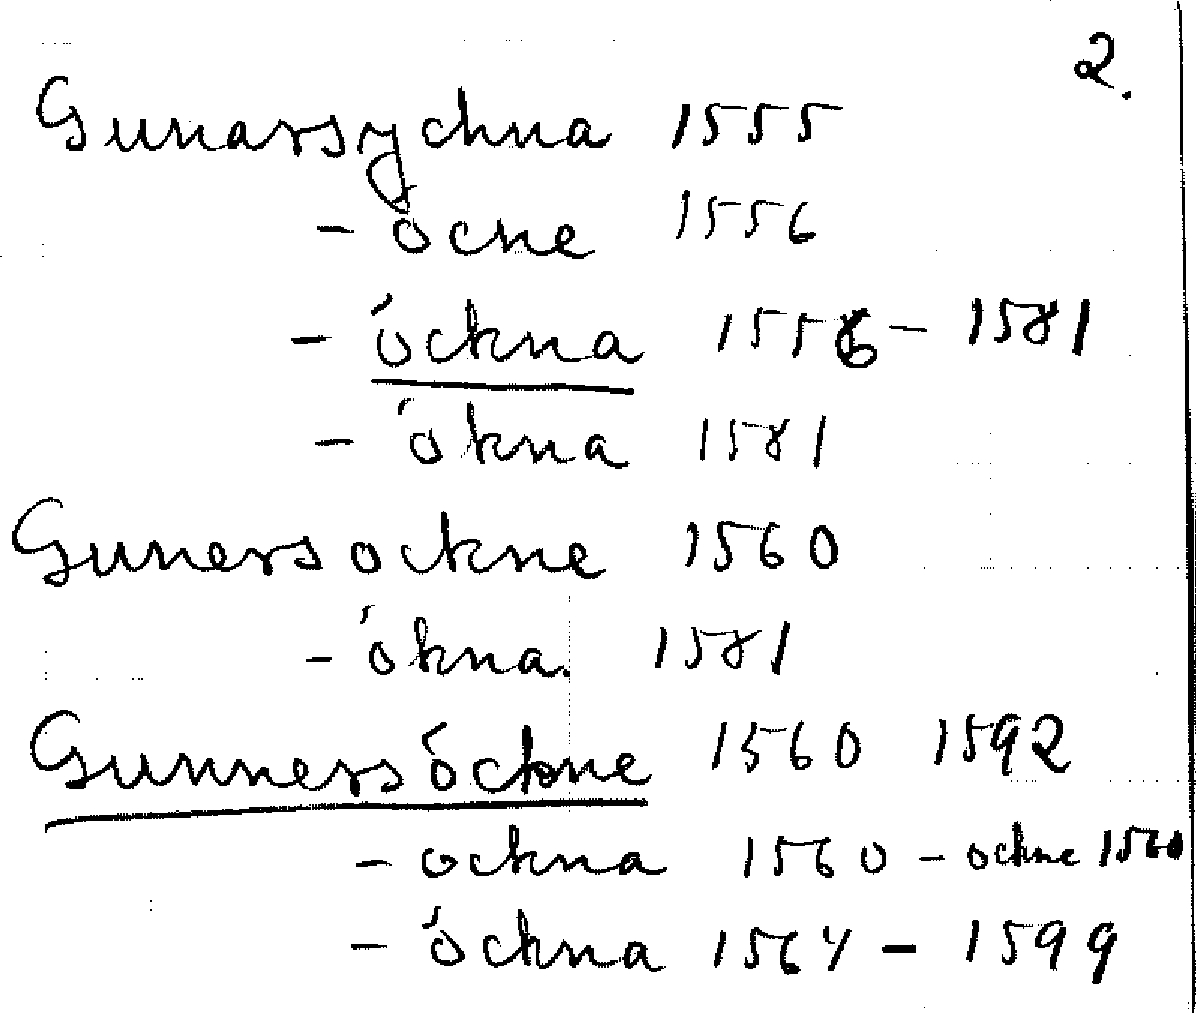 2.
Gunarsychna 1555
- ócne 1556
- óckna 1556 - 1581
- ókna 1581
Gunersockne 1560
- ókna. 1581
Gunnersóckne 1560 1592
- ockna 1560 - ochne 1560
- óckna 1564 - 1599